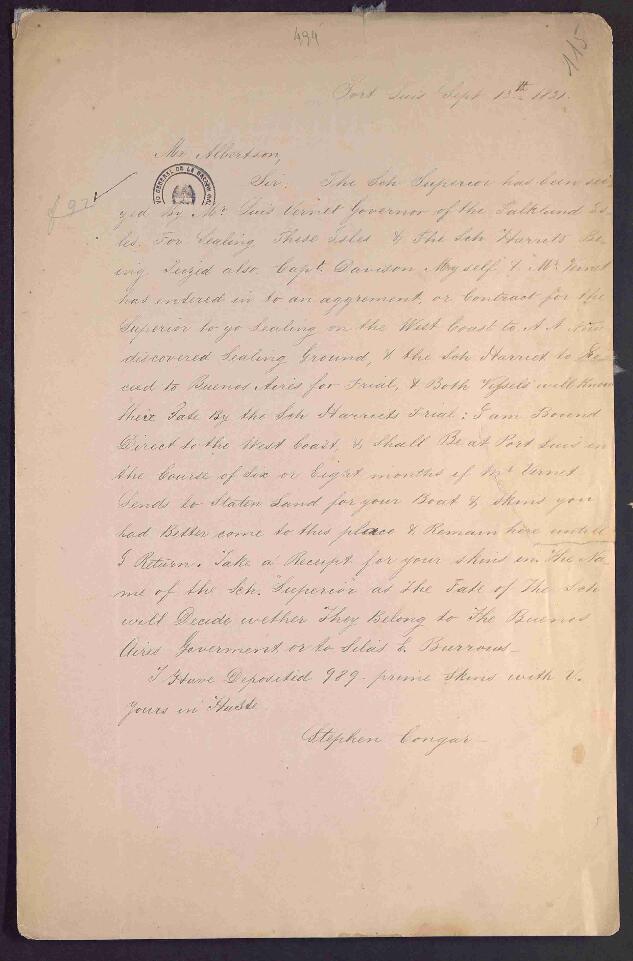 494
115
Port Luis Sept 13th 1831.
Mr Albertson,
Sir. The Sch Superior has been sei-
zed by Mr Luis Vernet Governor of the Falkland Is-
les. For Sealing These Isles & The Sch Harriets Be-
ing Siezed also, Capt. Davison Myself & Mr Vernet
has entered in to an aggrement, or Contract for the
Superior to go Sealing on the West Coast to A A New
discovered Sealing Ground, & the Sch Harriet to
ceed to Buenos Aires for Trial, & Both Vessels will Know
there Fate By the Sch Harriets Trial; I am Bound
Direct to the West Coast, & Shall Be at Port Luis in
the Course of Six or Eight months if Mr Vernet
Sends to Staten Land for your Boat & Skins you
had Better come to this place & Remain here untill
I Return. Take a Receipt for your skins in The Na-
me of the Sch. Superior as the Fate of The Sch
will Decide wether They Belong to The Buenos
Aires Goverment or to Silas E Burrows—
I Have Deposited 989 prime Skins with V.
Yours in Haste
Stephen Congar—